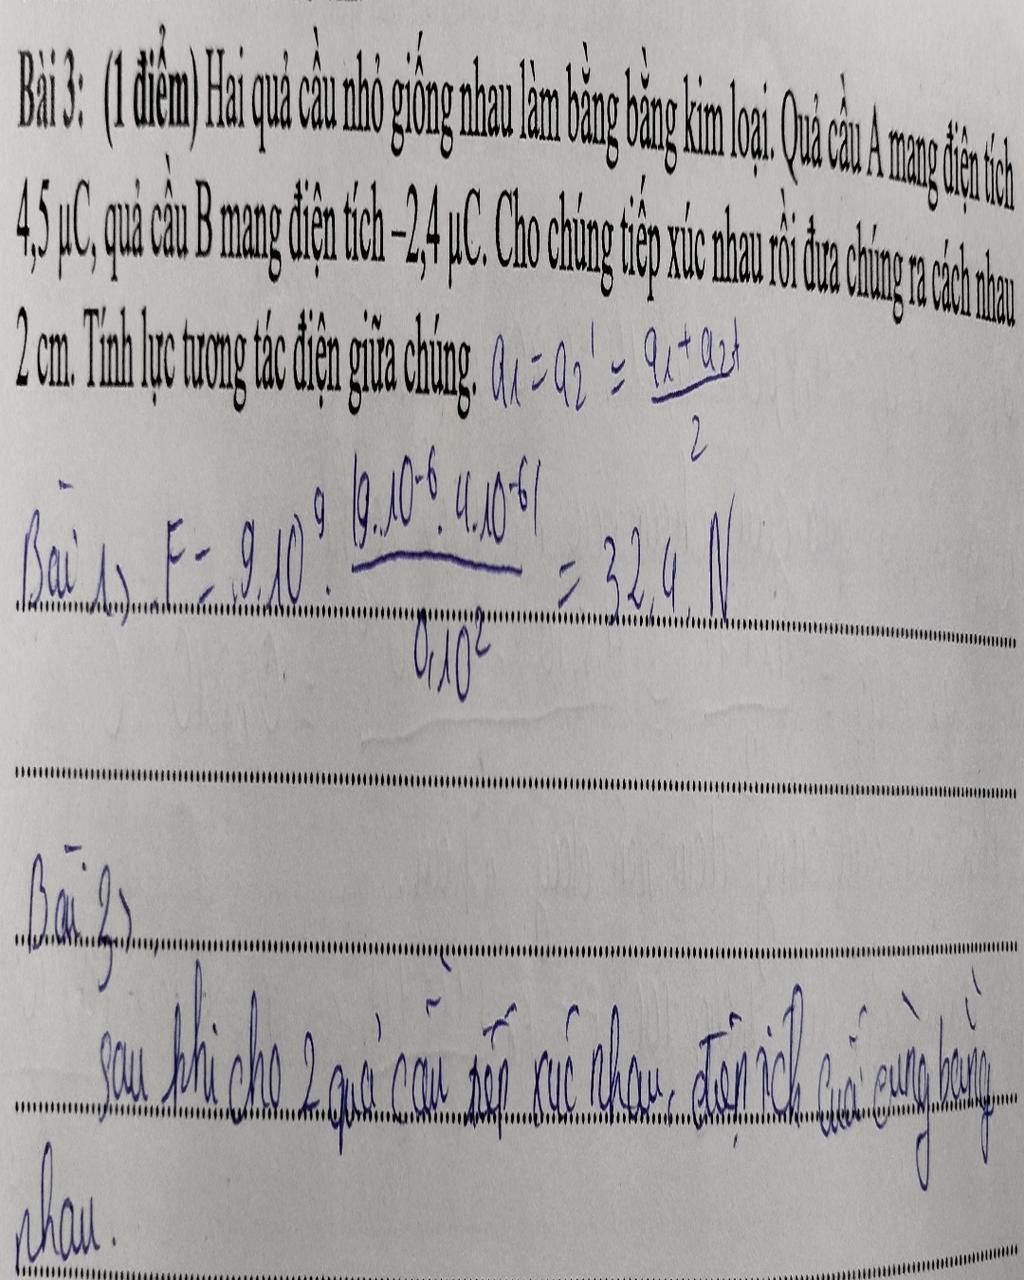 Bài 3: (1 điểm) Hai quả cầu nhỏ giống nhau làm bằng bằng kim loại. Quả cầu A mang điện tích
4,5 µC, quả cầu B mang điện tích –2,4 µC. Cho chúng tiếp xúc nhau rồi đưa chúng ra cách nhau
2 cm. Tính lực tương tác điện giữa chúng. q1 = q2' = q1 + q2 / 2
Bài 1) F = 9.10^9 . |9.10^-6 . 4.10^-6| / 0,10^2 = 32,4 N
Bài 2)
sau khi cho 2 quả cầu tiếp xúc nhau, điện ích cuả cùng bằng
nhau.